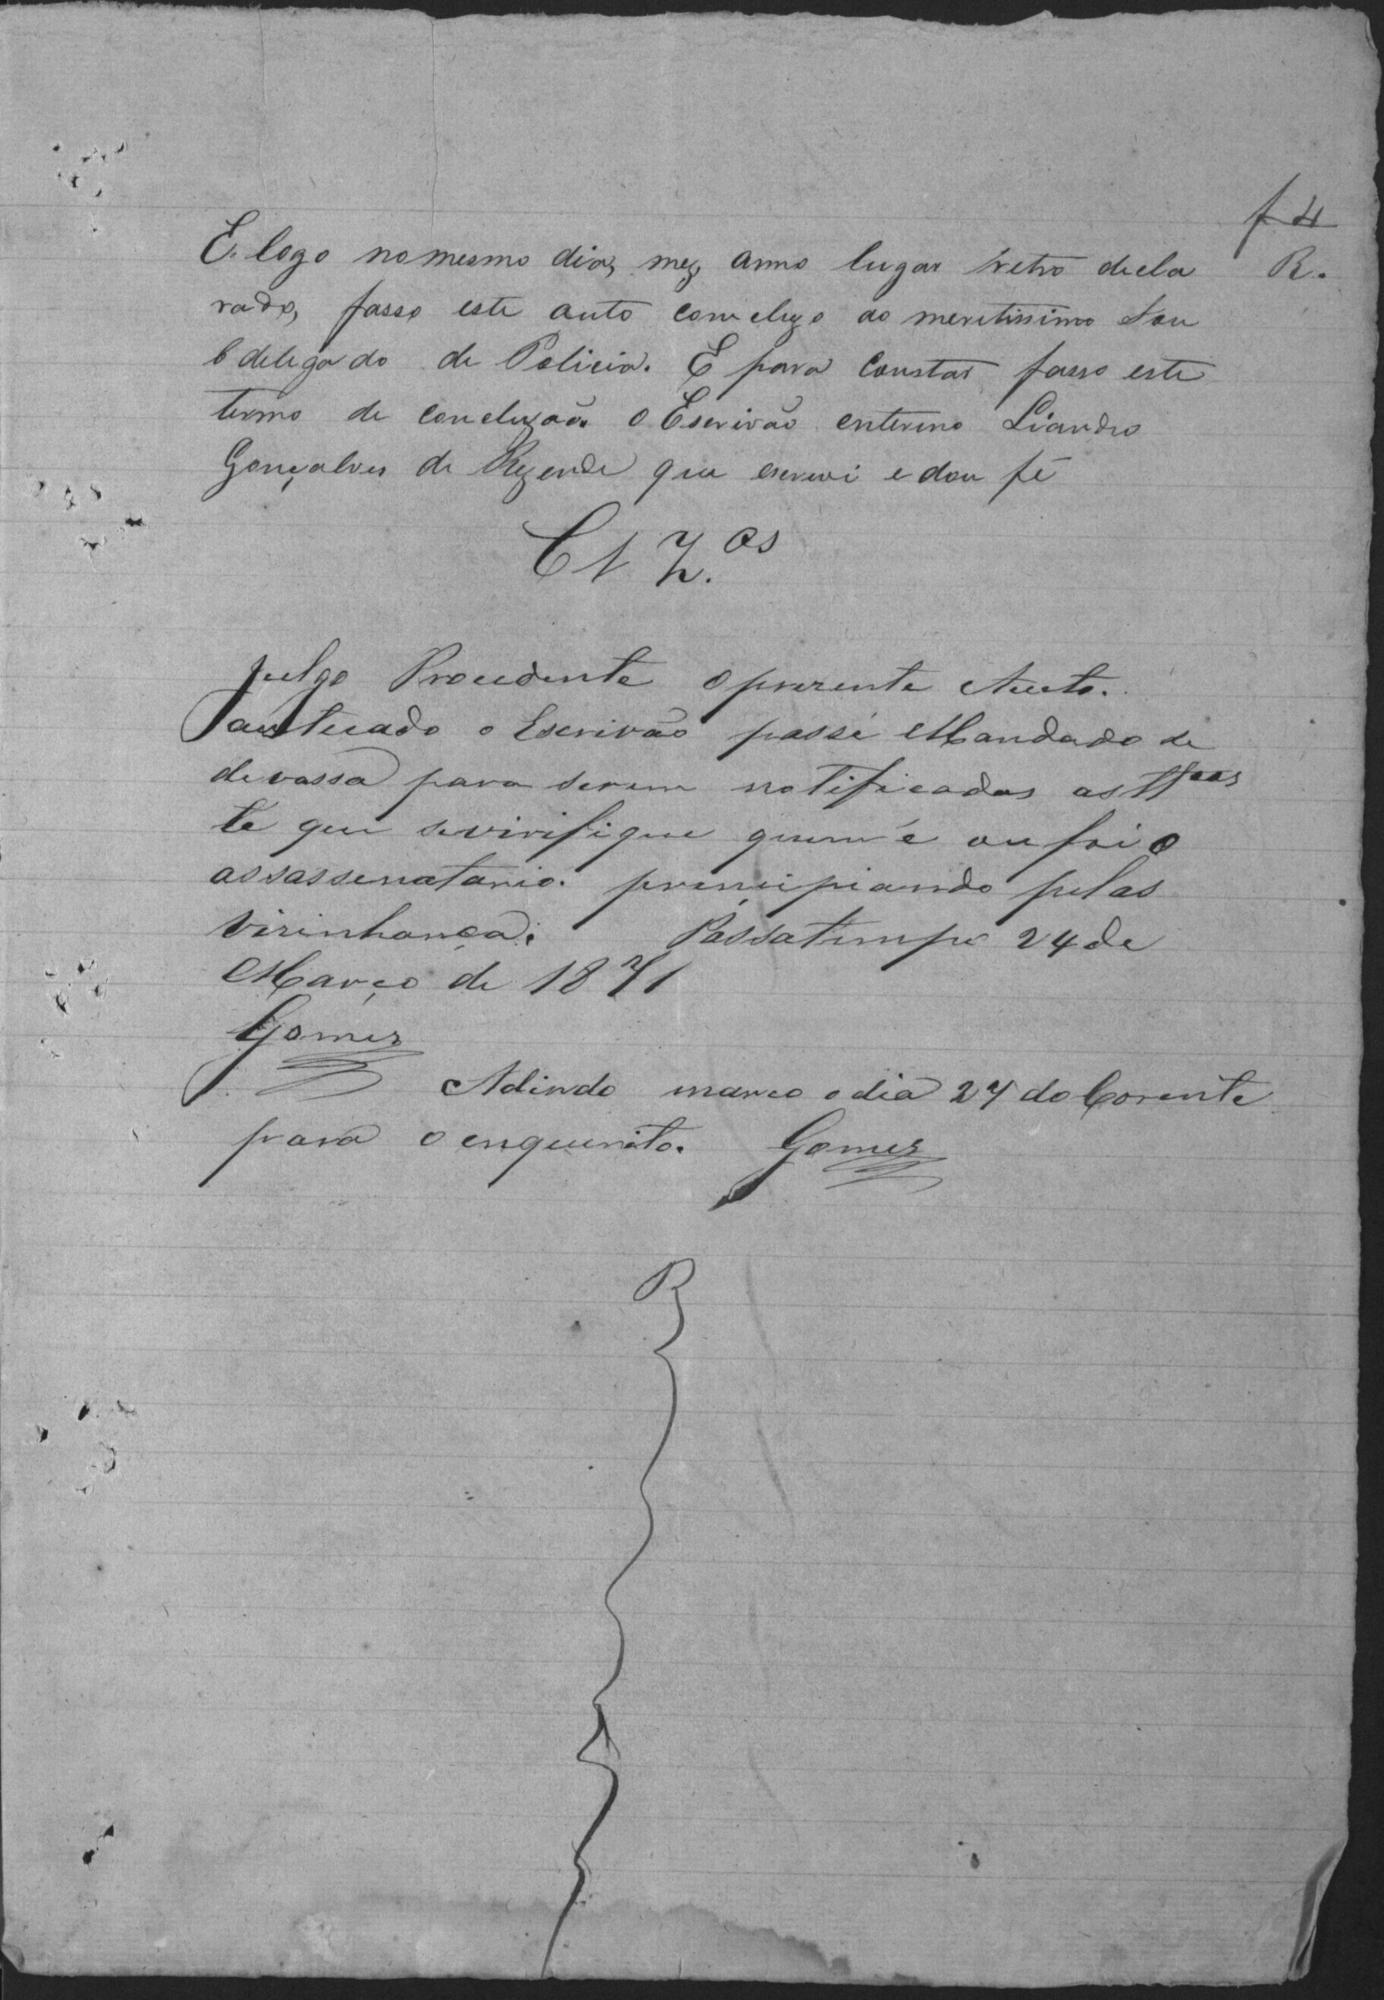 f 4
R.
E logo no mesmo dia, mez, anno lugar retro decla
rado, fasso este auto concluzo ao meretissimo Sou
bdelegado de Policia. E para constar fasso este
termo de concluzão. O Escrivão enterino Liandro
Gonçalves de Rezende que escrevi e dou fé
Cl z.os
Julgo Proudente o prezente Auto.
autuado o Escrivão passe Mandado de
devassa para serem notificadas as
te que severifique quem é ou foi o
assassenatario. principiando pelas
vizinhança. Passatempo 24 de
Março de 1871
Gomes
Adindo marco o dia 27 do Corente
para o enquerito. Gomes
R